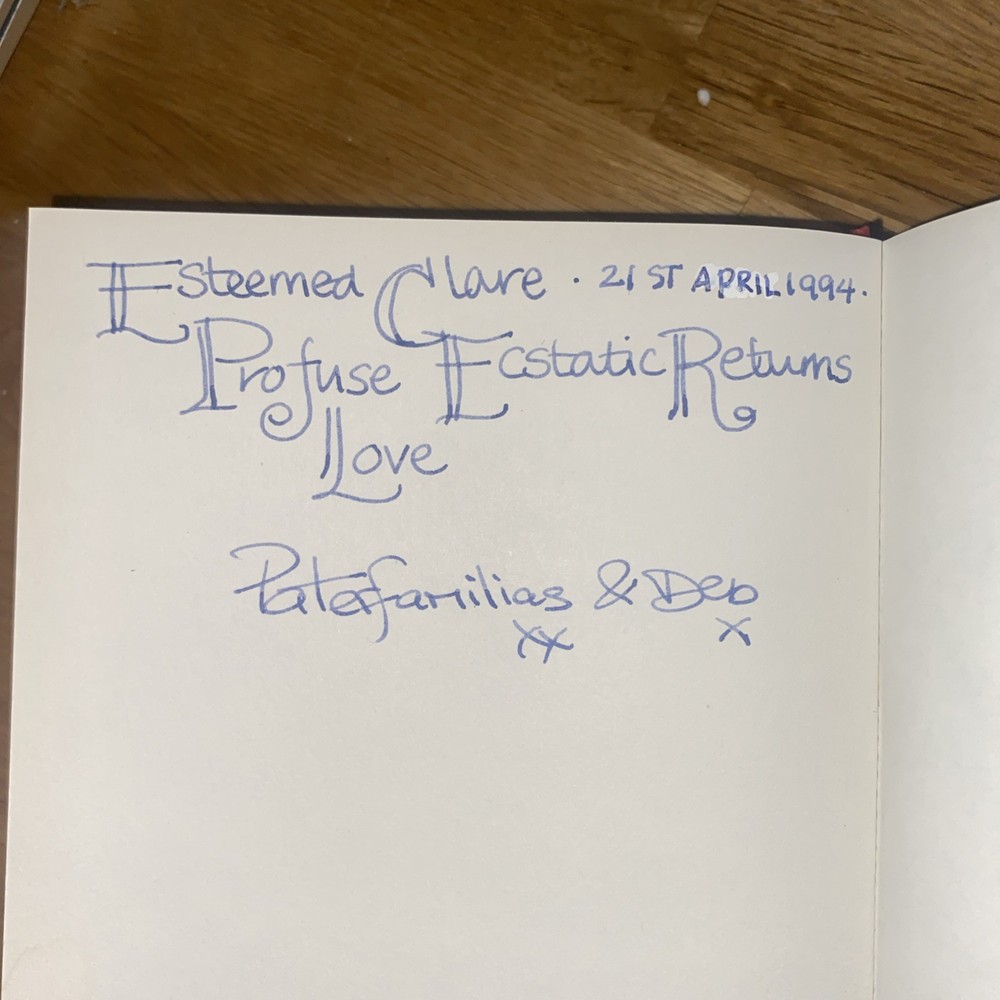 Esteemed Clare · 21ST APRIL 1994.
Profuse Ecstatic Returns
Love
Paterfamilias & Deb
xx x